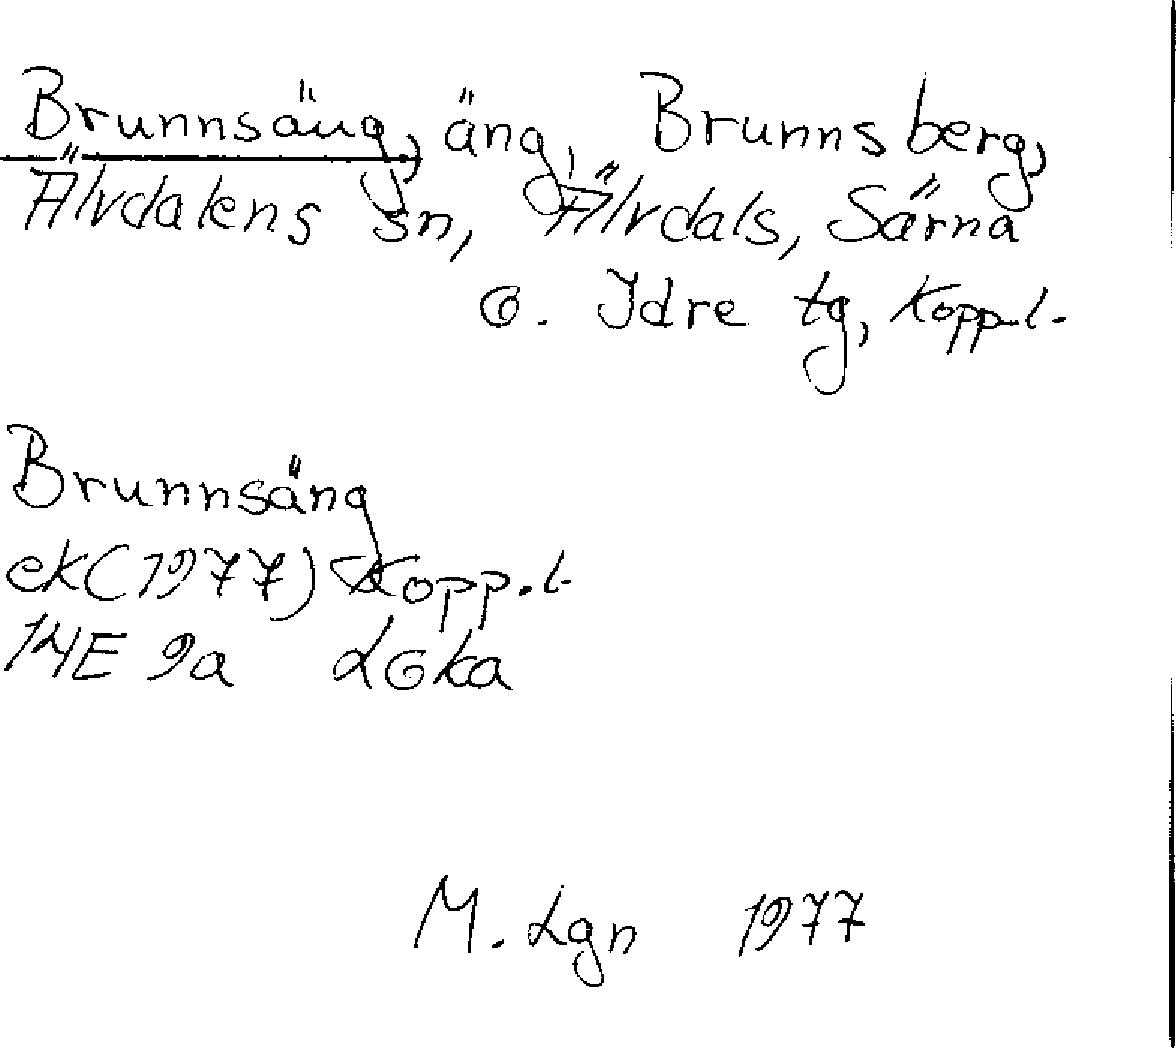 Brunnsäng, äng, Brunnsberg,
Älvdalens sn, Älvdals, Särna
o. Idre tg, Kopp.l.
Brunnsäng
ek (1977) Kopp.l.
14E 9a LGka
M. Lgn 1977